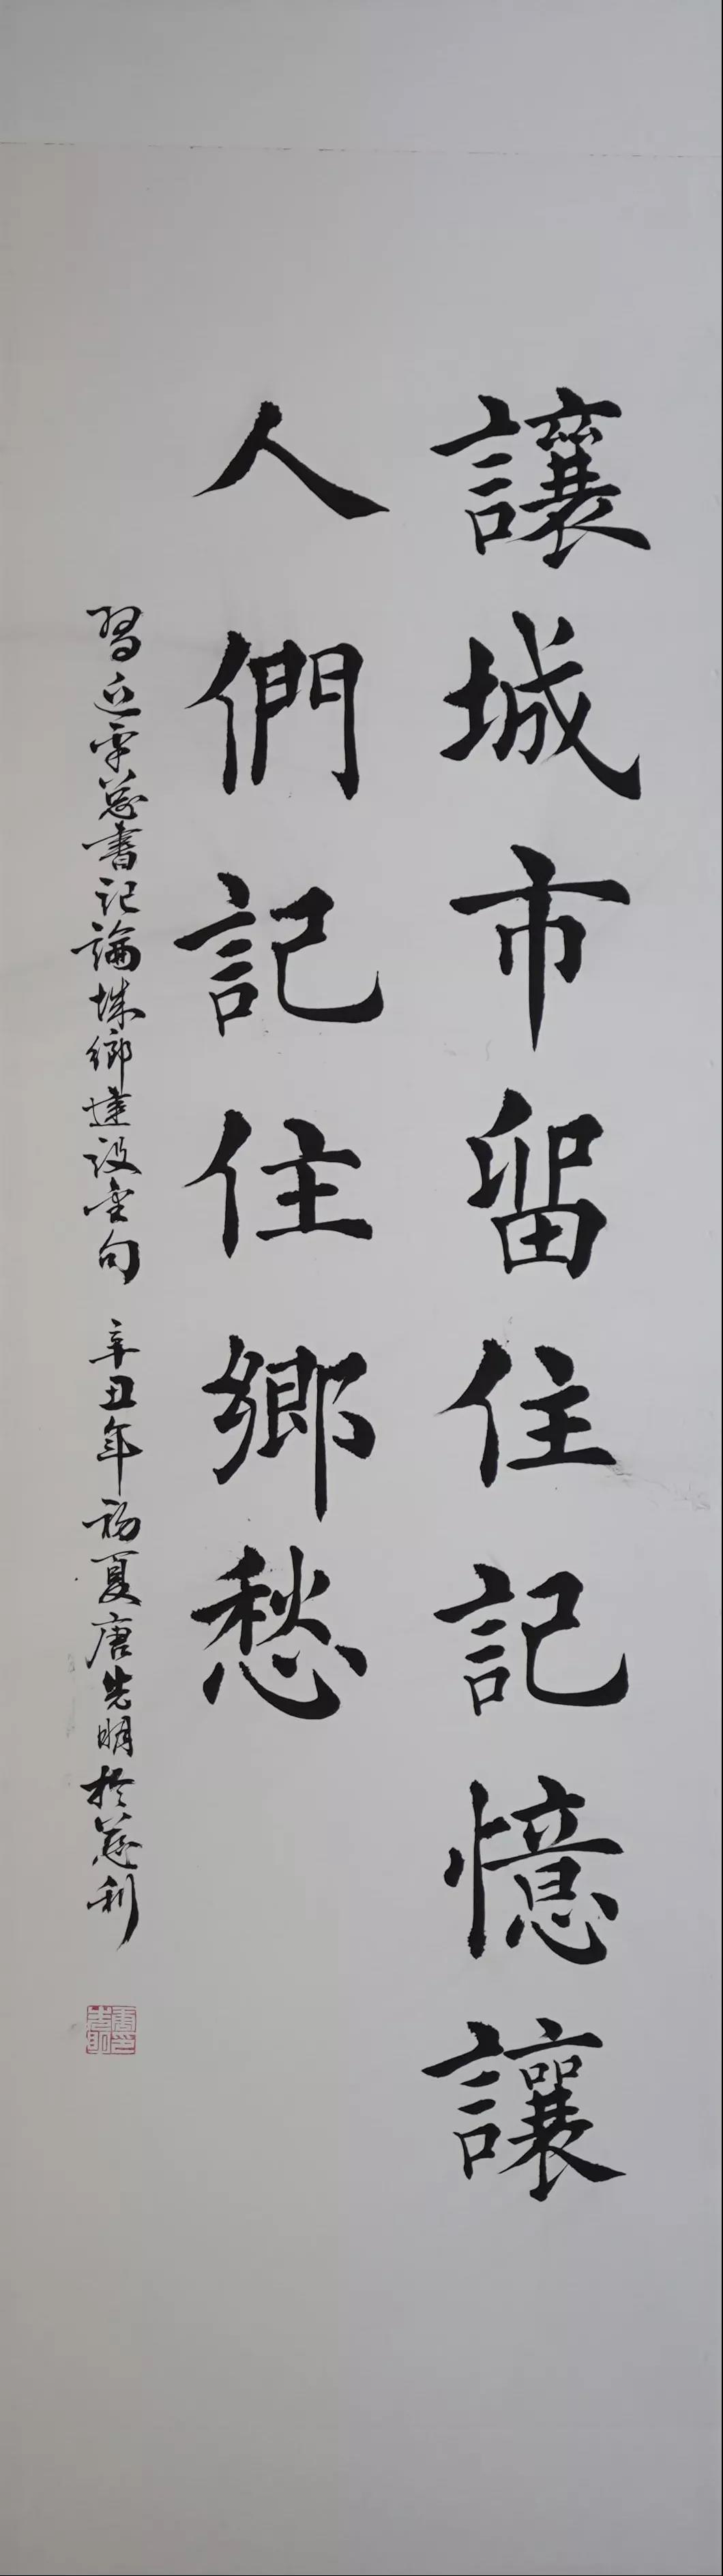 讓城市留住記憶讓
人們記住鄉愁
習近平总書記論城鄉建设金句 辛丑年初夏唐先明於慈利